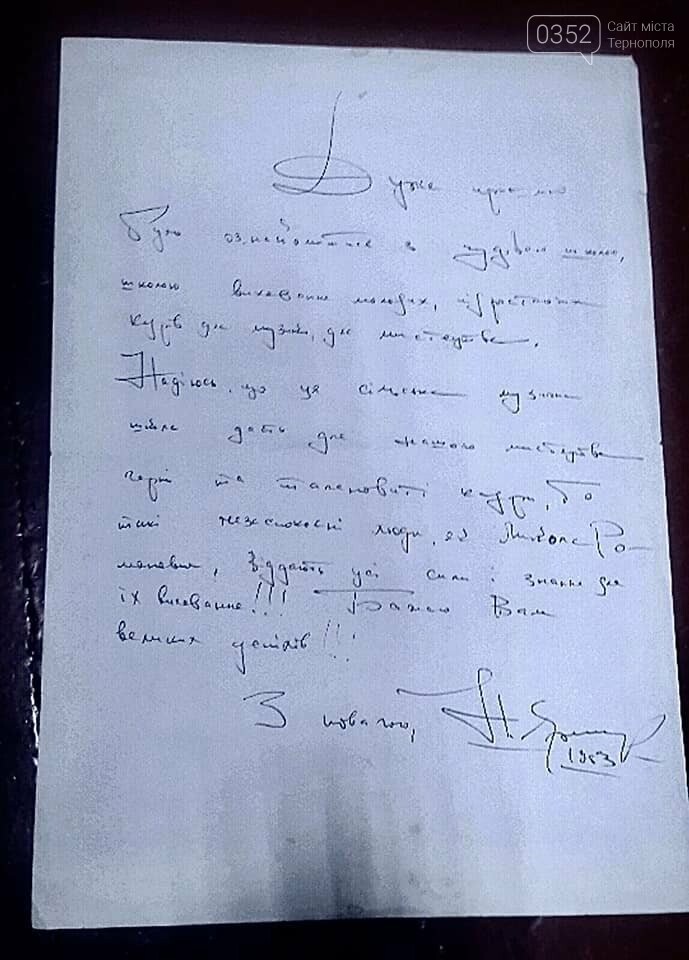 0352 Сайт міста
Тернополя
Дуже приємно
було ознайомитися з чудовою школою,
школою виховання молодих, підростаючих
кадрів для музики, для мистецтва.
Надіюсь, що ця сільська музична
школа дасть для нашого мистецтва
гарні та талановиті кадри, бо
такі незаспокоєні люди, як Микола Ро-
манович, віддають усі сили і знання для
їх виховання!!! Бажаю Вам
великих успіхів!!!
З повагою,